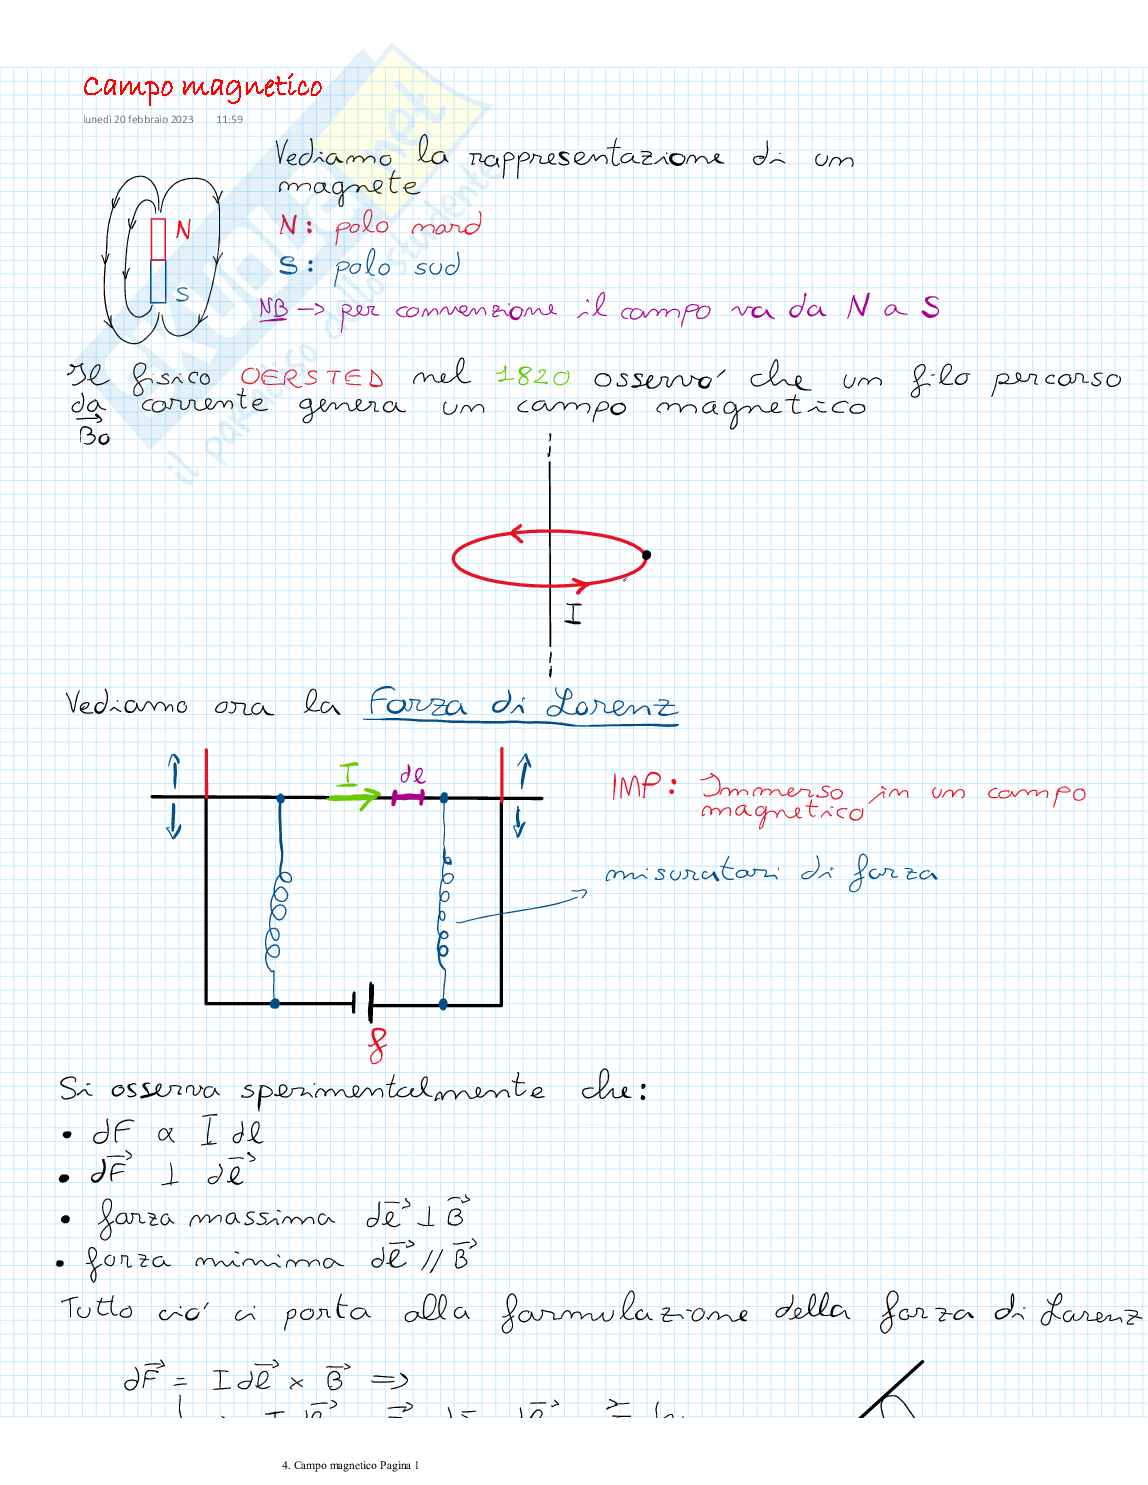 Campo magnetico
lunedì 20 febbraio 2023 11:59
Vediamo la rappresentazione di un
magnete
N: polo nord
S: polo sud
NB -> per convenzione il campo va da N a S
N
S
Il fisico OERSTED nel 1820 osservo' che un filo percorso
da corrente genera un campo magnetico
B0
I
Vediamo ora la Forza di Lorenz
I
dl
IMP: Immerso in un campo
magnetico
misuratori di forza
f
Si osserva sperimentalmente che:
• dF ∝ I dl
• dF⃗ ⊥ dl⃗
• forza massima dl⃗ ⊥ B⃗
• forza minima dl⃗ // B⃗
Tutto cio' ci porta alla formulazione della forza di Lorenz
dF⃗ = I dl⃗ × B⃗ =>
4. Campo magnetico Pagina 1